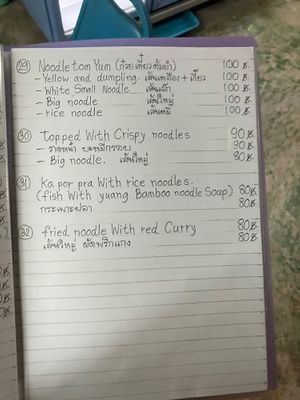 29 Noodle tom Yum (ก๋วยเตี๋ยวต้มยำ) 100 ฿.
- Yellow and dumpling. เส้นเหลือง + เกี๊ยว 100 ฿.
- White Small Noodle เส้นเล็ก 100 ฿.
- Big noodle เส้นใหญ่ 100 ฿.
- rice noodle เส้นหมี่ 100 ฿.
30 Topped With Crispy noodles 90 ฿.
- ราดหน้า บะหมี่กรอบ 90 ฿.
- Big noodle. เส้นใหญ่ 80 ฿.
31 Ka por pra With rice noodles.
(fish With yuang Bamboo noodle Soup) 80฿.
กระเพาะปลา 80฿.
32 fried noodle With red Curry 80฿.
เส้นใหญ่ ผัดพริกแกง 80฿.